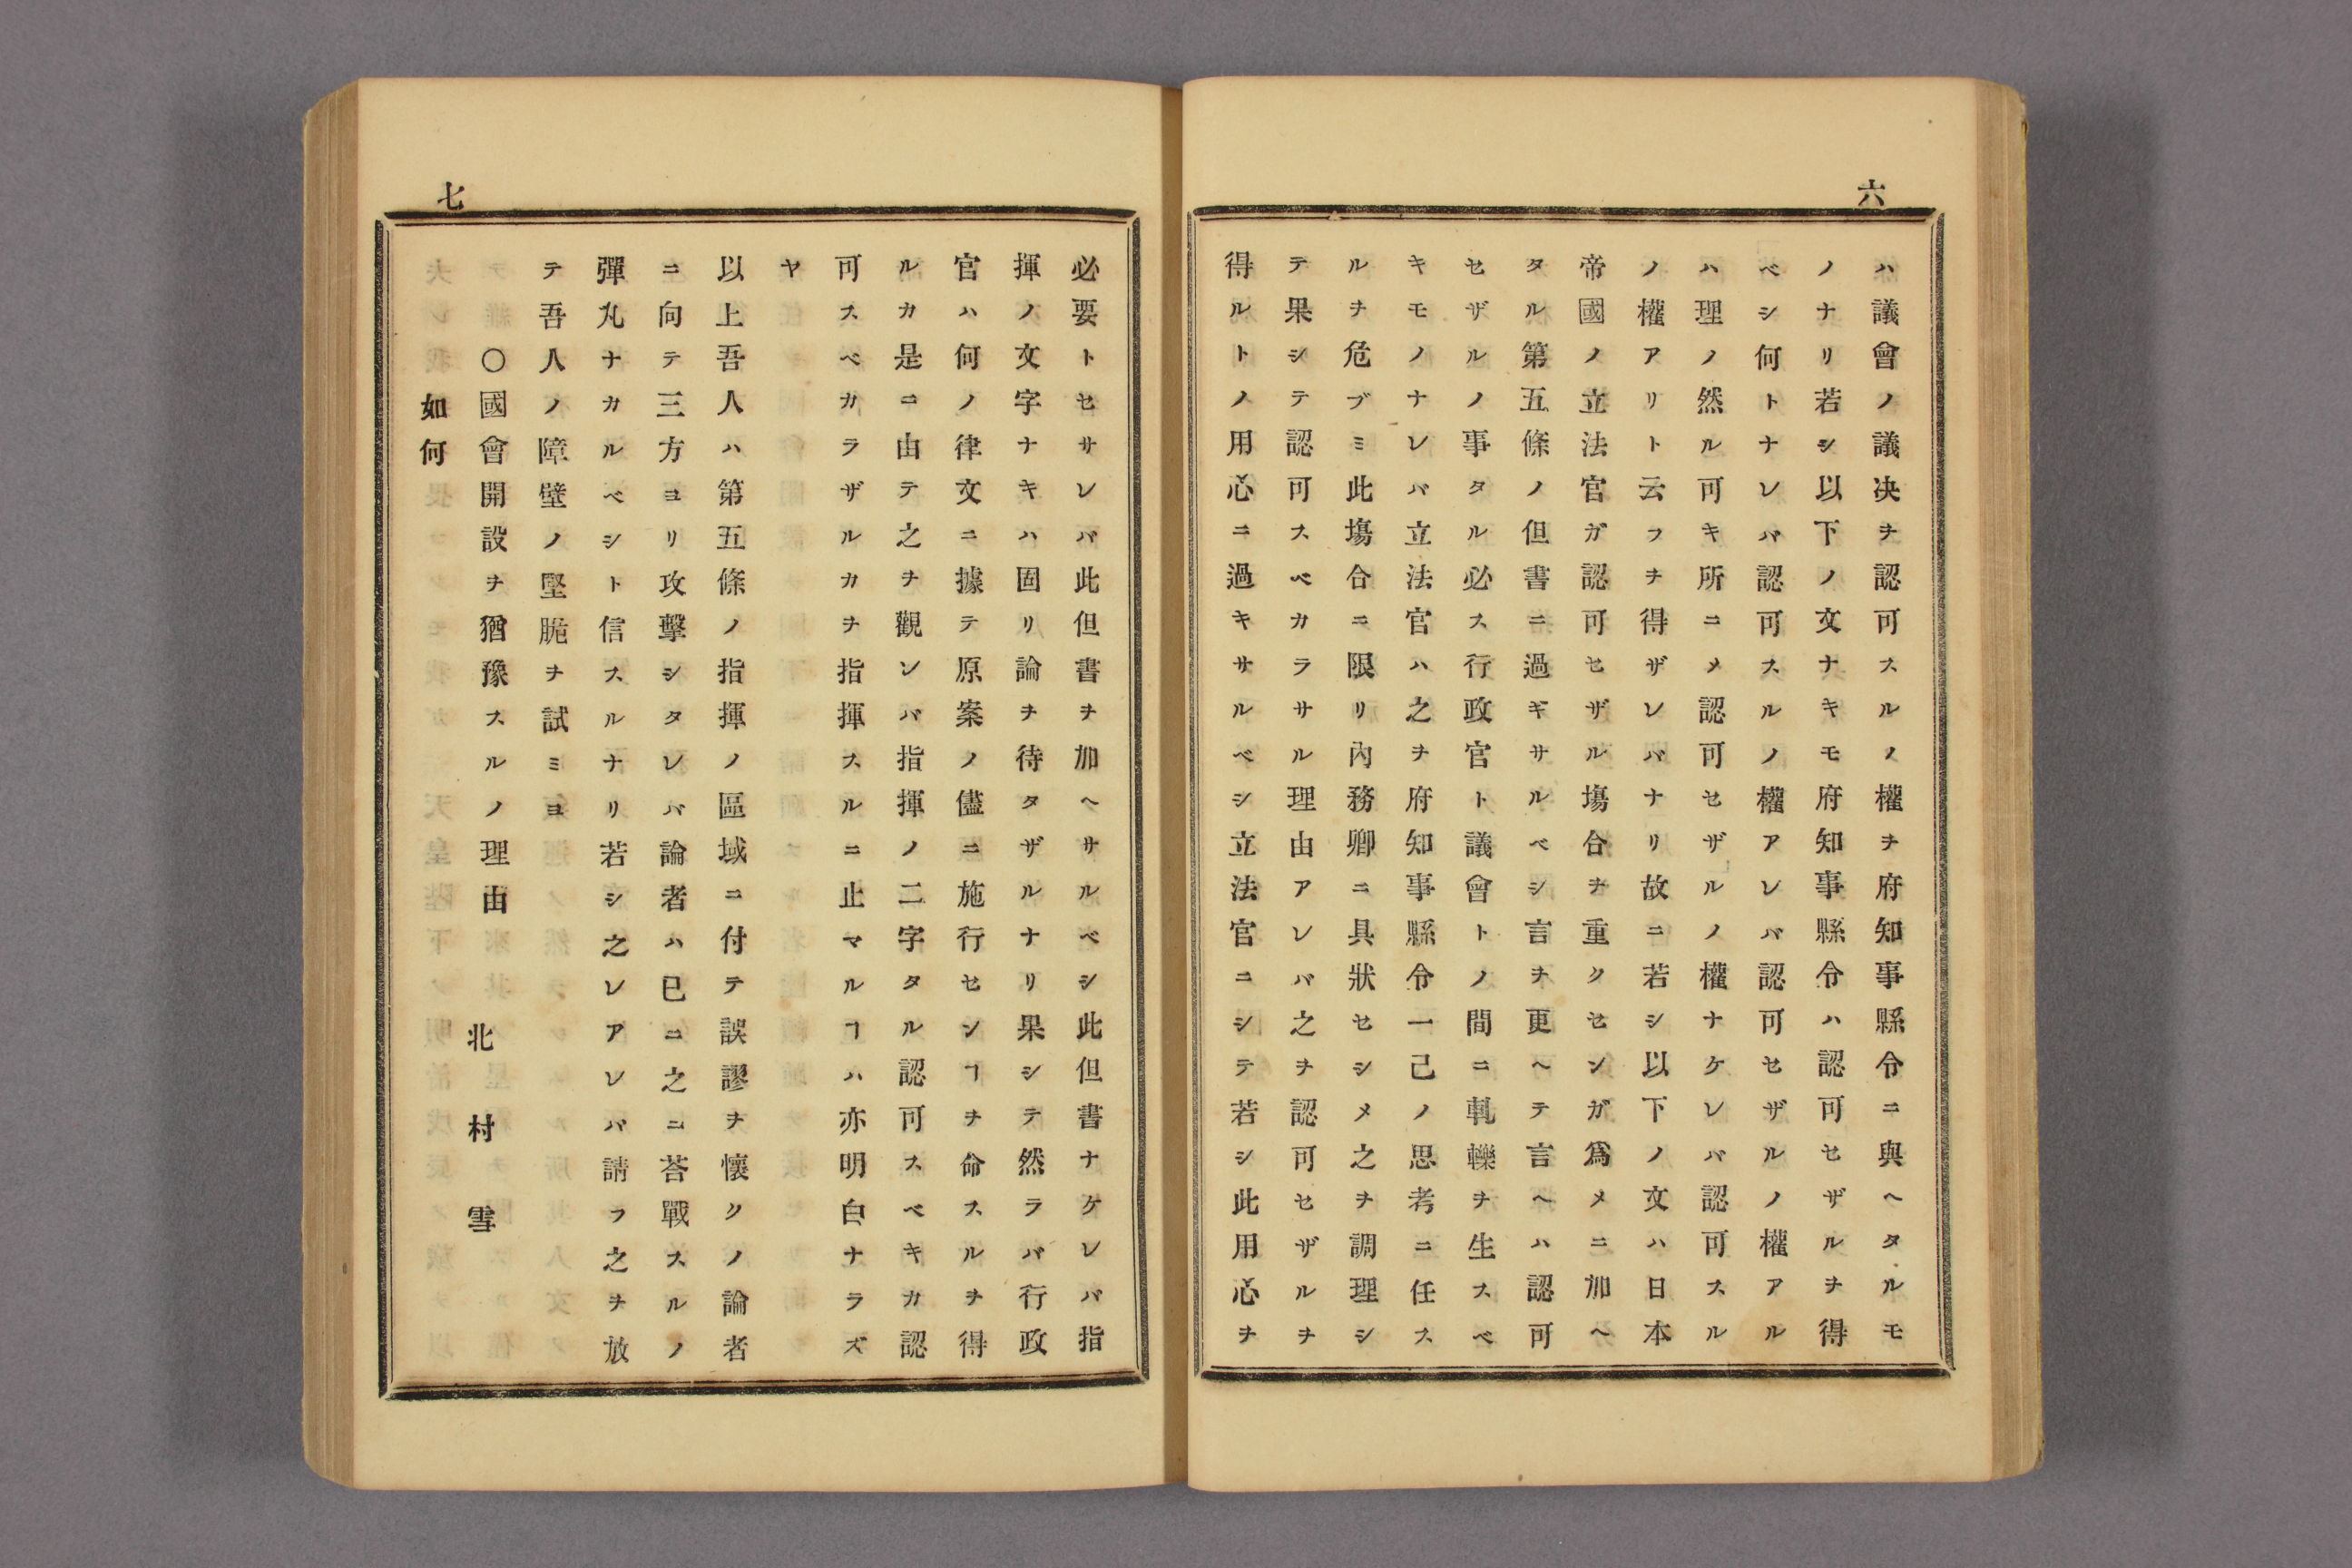 六
ハ議會ノ議决ヲ認可スルノ權ヲ府知事縣令ニ與ヘタルモ
ノナリ若シ以下ノ文ナキモ府知事縣令ハ認可セザルヲ得
ベシ何トナレバ認可スルノ權アレバ認可セザルノ權アル
ハ理ノ然ル可キ所ニメ認可セザルノ權ナケレバ認可スル
ノ權アリト云フヲ得ザレバナリ故ニ若シ以下ノ文ハ日本
帝國ノ立法官ガ認可セザル塲合ヲ重クセンガ爲メニ加ヘ
タル第五條ノ但書ニ過ギサルベシ言ヲ更ヘテ言ヘハ認可
セザルノ事タル必ス行政官ト議會トノ間ニ軋轢ヲ生スベ
キモノナレバ立法官ハ之ヲ府知事縣令一己ノ思考ニ任ス
ルヲ危ブミ此塲合ニ限リ內務卿ニ具狀セシメ之ヲ調理シ
テ果シテ認可スベカラサル理由アレバ之ヲ認可セザルヲ
得ルトノ用心ニ過キサルベシ立法官ニシテ若シ此用心ヲ
七
必要トセサレバ此但書ヲ加ヘサルベシ此但書ナケレバ指
揮ノ文字ナキハ固リ論ヲ待タザルナリ果シテ然ラバ行政
官ハ何ノ律文ニ據テ原案ノ儘ニ施行センヿヲ命スルヲ得
ルカ是ニ由テ之ヲ觀レバ指揮ノ二字タル認可スベキカ認
可スベカラザルカヲ指揮スルニ止マルヿハ亦明白ナラズ
ヤ
以上吾人ハ第五條ノ指揮ノ區域ニ付テ誤謬ヲ懷クノ論者
ニ向テ三方ヨリ攻擊シタレバ論者ハ已ニ之ニ荅戰スルノ
彈丸ナカルベシト信スルナリ若シ之レアレバ請フ之ヲ放
テ吾人ノ障壁ノ堅脆ヲ試ミヨ
○國會開設ヲ猶豫スルノ理由
如何
北村雪